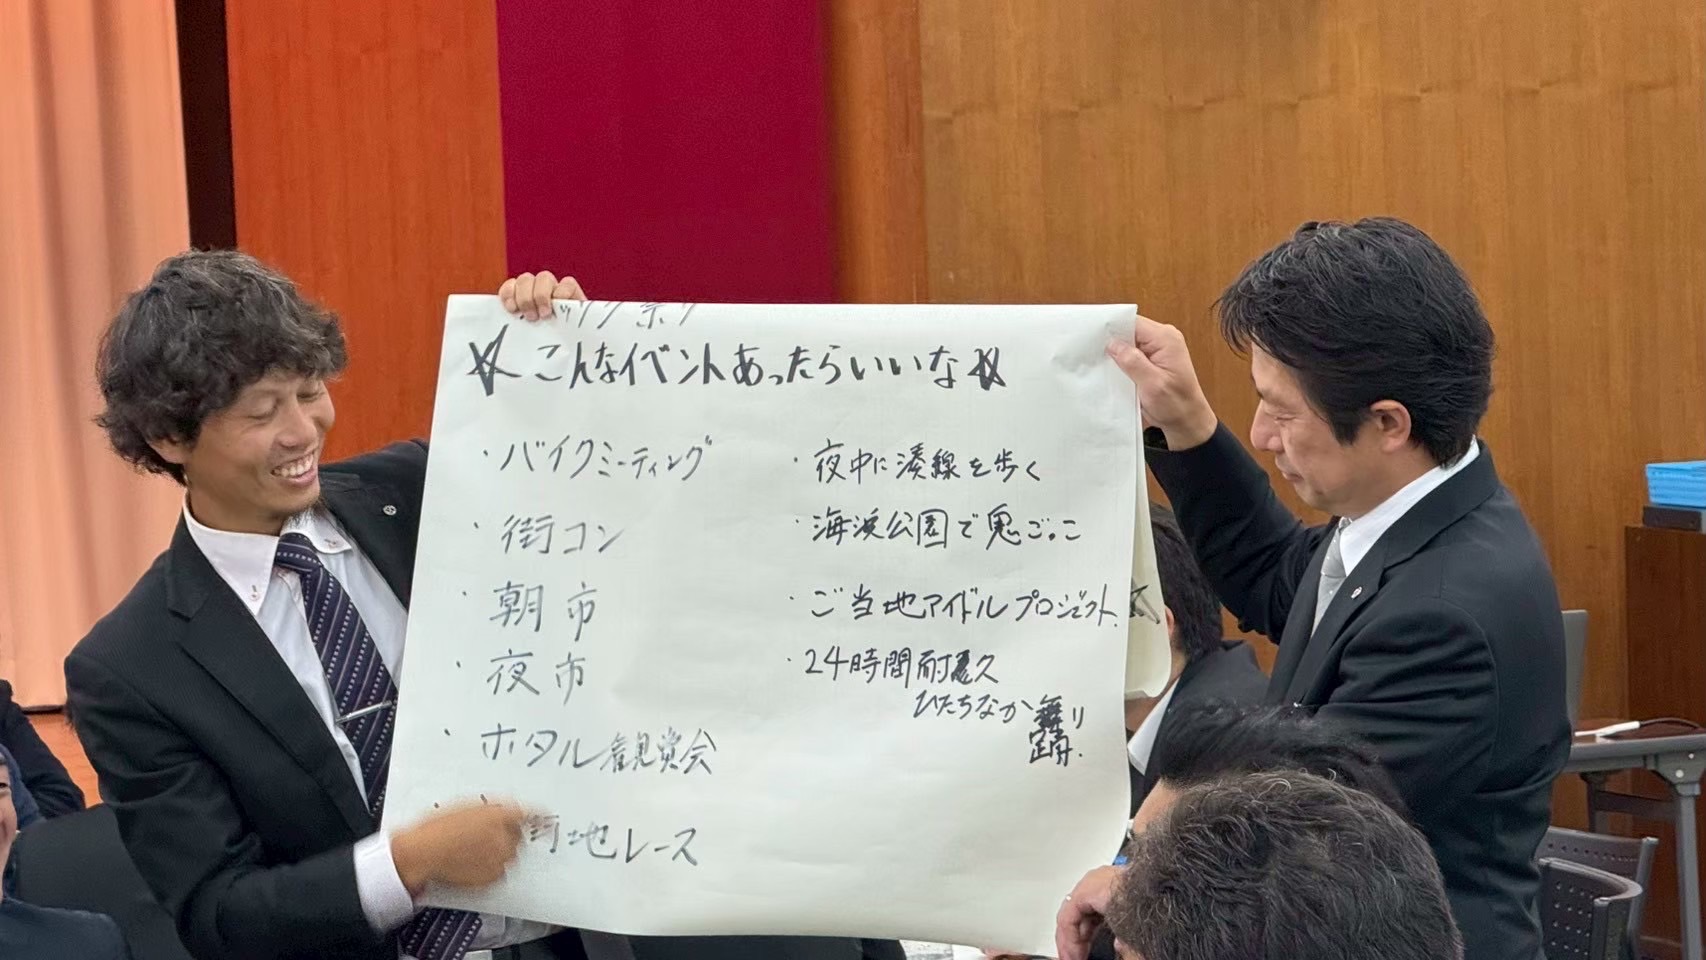 ☆こんなイベントあったらいいな☆
・バイクミーティング
・街コン
・朝市
・夜市
・ホタル観賞会
街地レース
・夜中に湊線を歩く
・海浜公園で鬼ごっこ
・ご当地アイドルプロジェクト
・24時間耐久
ひたちなか舞踊り